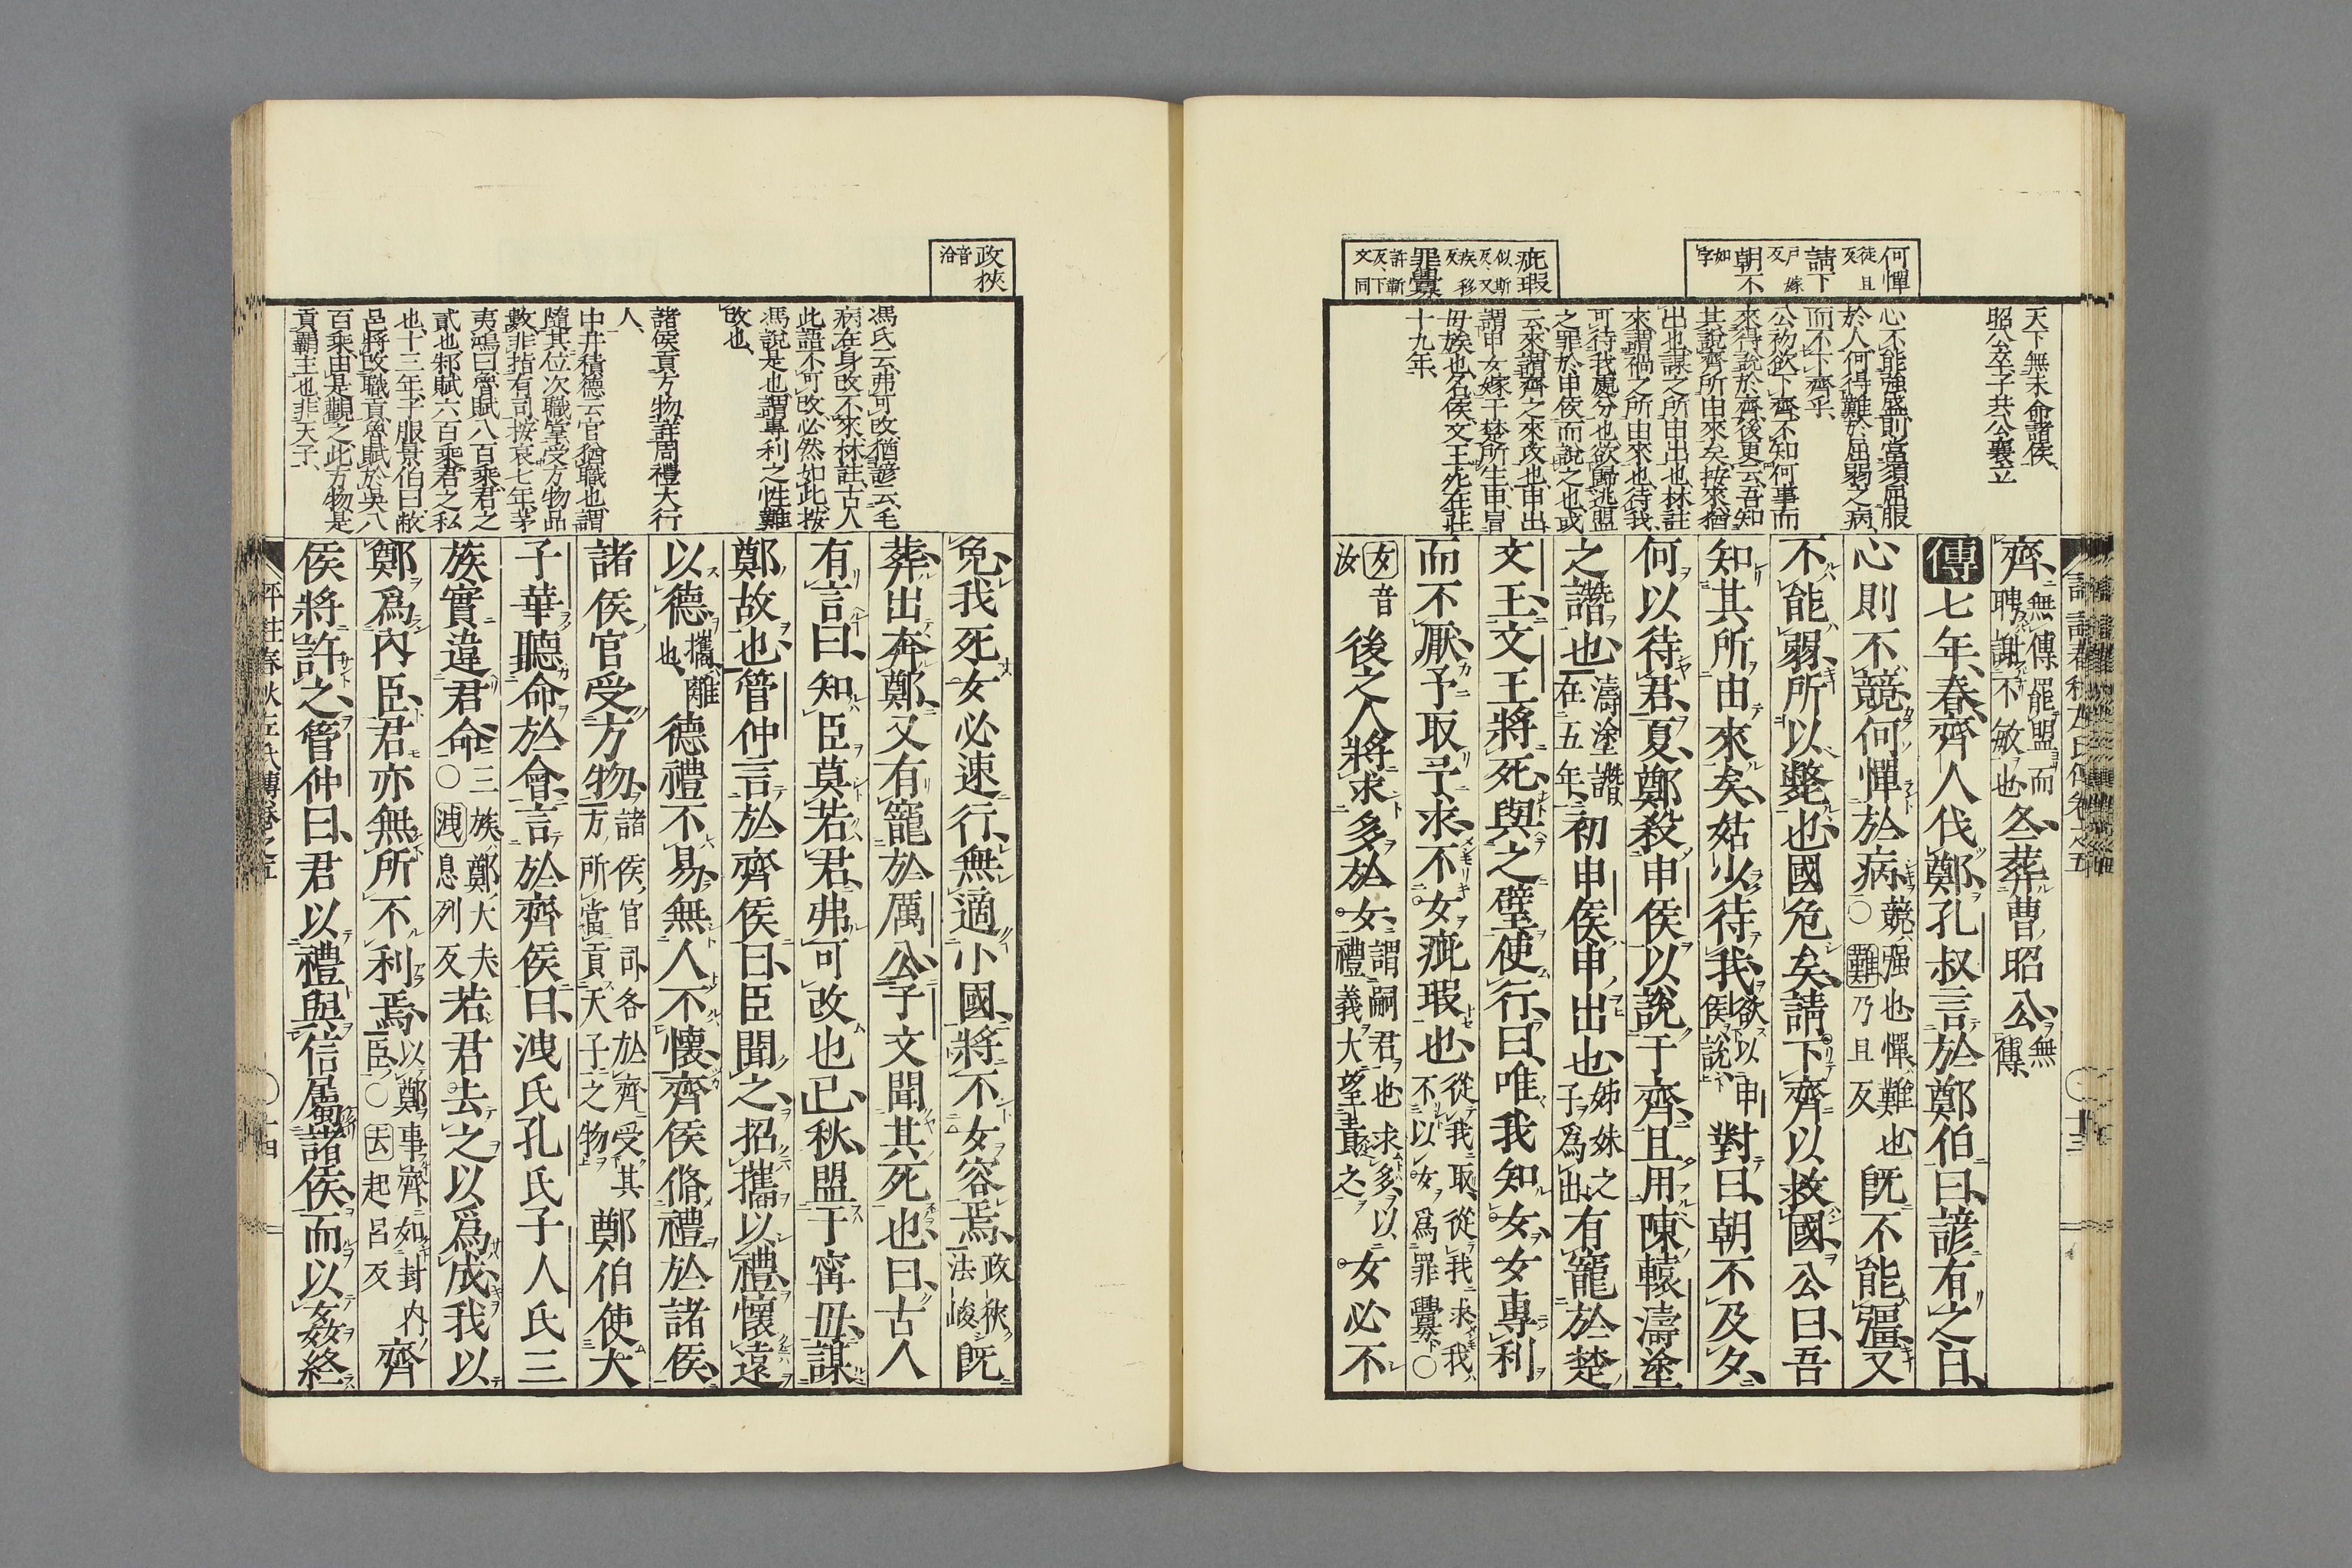 何憚
徒且
反
請下
戶嫁
反
朝不
如
字
疵瑕
似斯
反又
疾移
反
罪釁
許靳
反下
文同
天下無未命諸侯
昭公卒子共公襄立
心不能強盛則當須屈服
於人何得難於屈弱之病
而不下齊乎
公初欲下齊不知何事而
來待說於齊後更云吾知
其說齊所由來矣按來猶
出也謀之所由出也林註
來謂禍之所由來也待我
可待我處分也欲歸逃盟
之罪於申侯而說之也或
云來謂齊之來攻也申出
謂申女嫁于楚所生申冒
毋族也名侯文王死在莊
十九年
齊無傳罷盟而
聘謝不敏也冬葬曹昭公無
傳
傳七年春齊人伐鄭孔叔言於鄭伯曰諺有之曰
心則不競何憚於病競强也憚難也
○難乃且反既不能彊又
不能弱所以斃也國危矣請下齊以救國公曰吾
知其所由來矣姑少待我欲以申
侯說對曰朝不及夕
何以待君夏鄭殺申侯以說于齊且用陳轅濤塗
之譖也濤塗譖
在五年初申侯申出也姊妹之
子爲出有寵於楚
文王文王將死與之璧使行曰唯我知女女專利
而不厭予取予求不女疵瑕也從我取從我求我
不以女爲罪釁○
女音
汝後之人將求多於女謂嗣君也求多以
禮義大望責之女必不
政狹
音
洽
馮氏云弗可改猶諺云毛
病在身改不來林註古人
此語不可改必然如此按
馮說是也謂專利之性難
改也
諸侯貢方物詳周禮大行
人
中井積德云官猶職也謂
隨其位次職掌受方物品
數非指有司按哀七年茅
夷鴻曰魯賦八百乘君之
貳也邾賦六百乘君之私
也十三年子服景伯曰敝
邑將改職貢魯賦於吳八
百乘由是觀之此方物是
貢霸主也非天子
免我死女必速行無適小國將不女容焉政狹
法峻既
葬出奔鄭又有寵於厲公子文聞其死也曰古人
有言曰知臣莫若君弗可改也已秋盟于甯毋謀
鄭故也管仲言於齊侯曰臣聞之招攜以禮懷遠
以德攜離
也德禮不易無人不懷齊侯脩禮於諸侯
諸侯官受方物諸侯官司各於齊受其
方所當貢天子之物鄭伯使大
子華聽命於會言於齊侯曰洩氏孔氏子人氏三
族實違君命三族鄭大夫
○洩息列反若君去之以爲成我以
鄭爲內臣君亦無所不利焉以鄭事齊如封內
臣○去起呂反齊
侯將許之管仲曰君以禮與信屬諸侯而以姦終